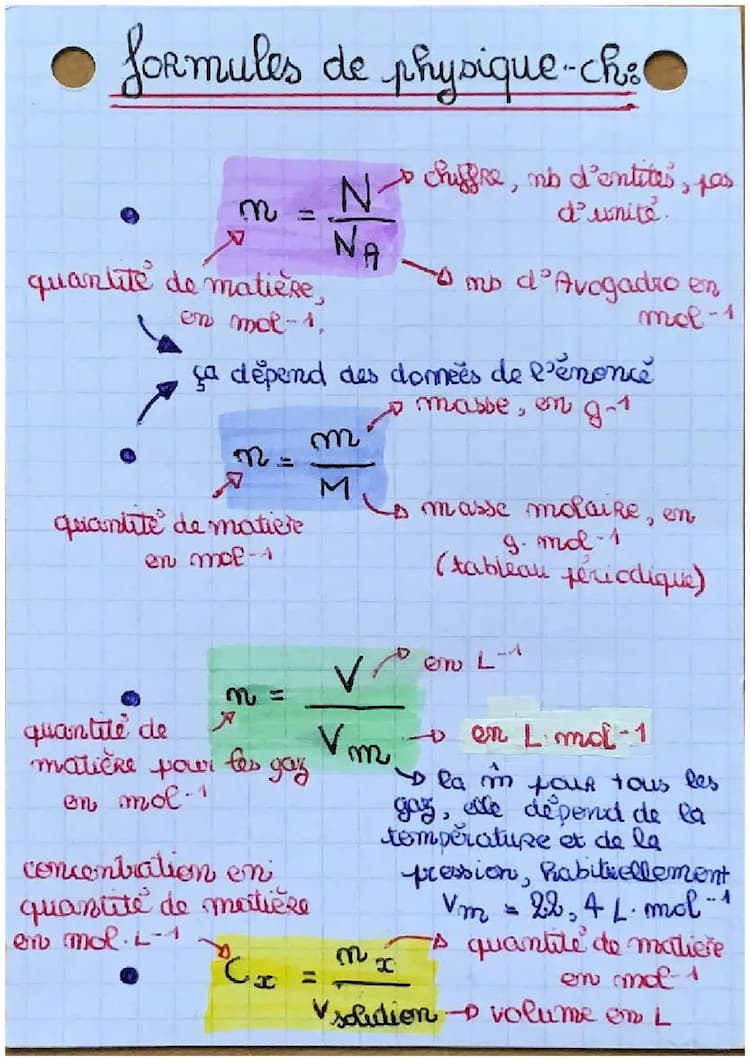 formules de physique-ch:
n = N / NA
chiffre, nb d'entités, pas
d'unité.
quantité de matière,
en mol-1,
nb d'Avogadro en
mol-1
ça dépend des données de l'énoncé
n = m / M
masse, en g-1
quantité de matière
en mol-1
masse molaire, en
g. mol-1
(tableau périodique)
n = V / Vm
en L-1
quantité de
matière pour les gaz
en mol-1
en L.mol-1
la m̂ pour tous les
gaz, elle dépend de la
température et de la
pression, habituellement
Vm = 22,4 L. mol-1
concentration en
quantité de matière
en mol.L-1
Cx = nx / Vsolution
quantité de matière
en mol-1
volume en L